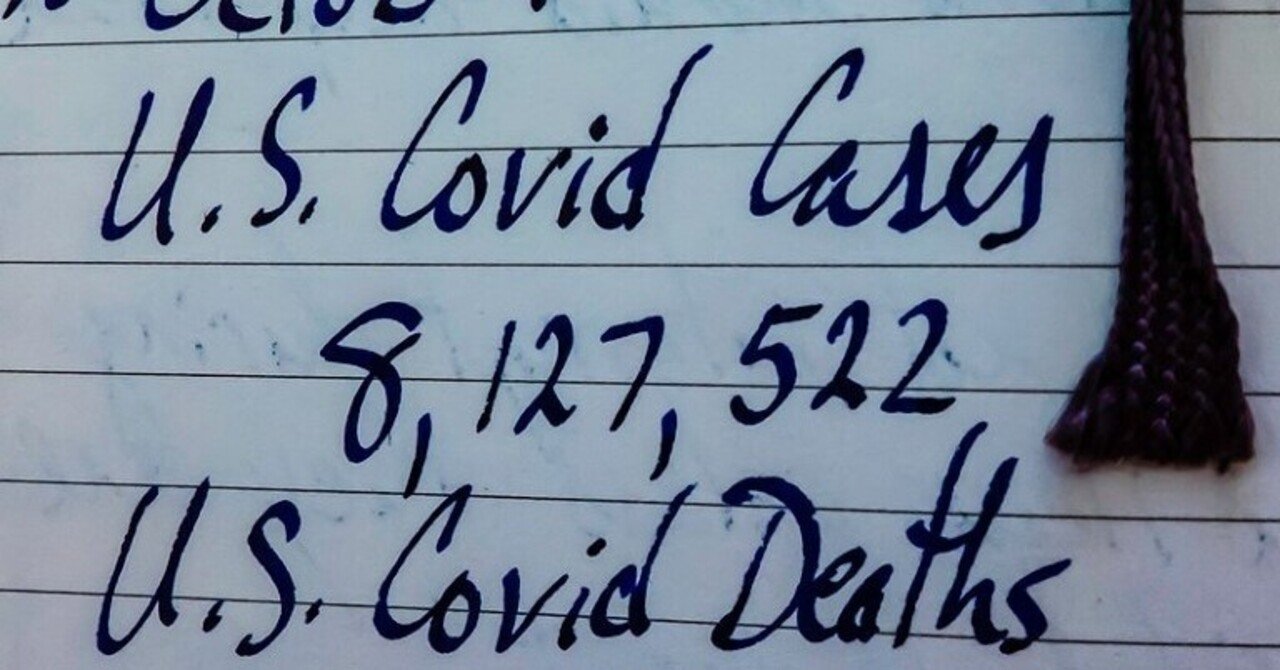 U.S. Covid Cases
8,127,522
U.S. Covid Deaths